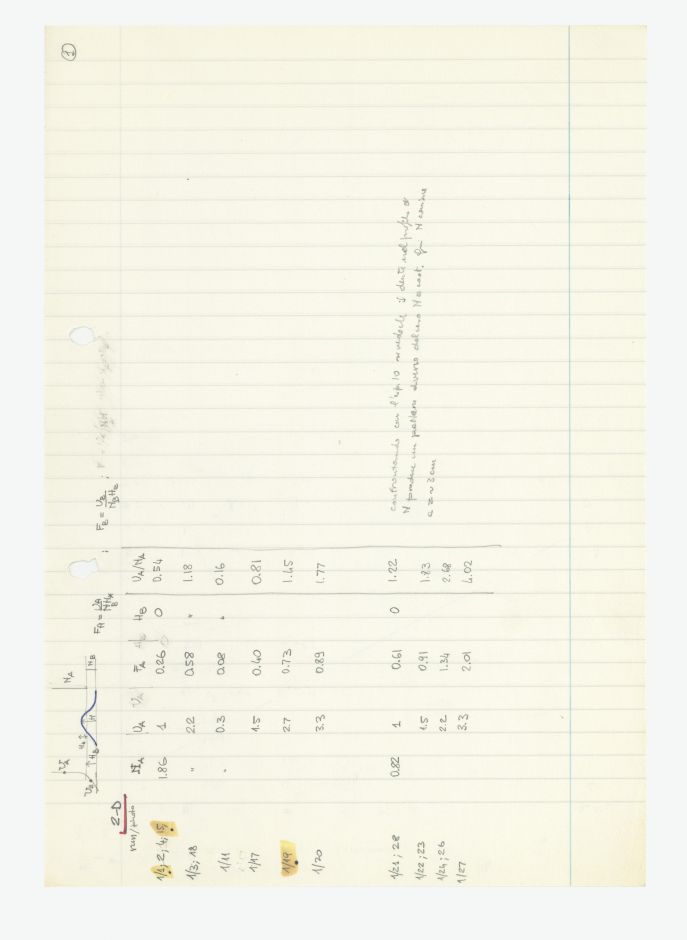 1
N_A
U_A
U_B
H_B
H
H_B
F_A = U_A/NH_B ; F_B = U_B/N_BH_B ;
2-D
run/photo N_A U_A F_A H_B U_A/N_A
1/1; 2; 4; 15; 1.86 1 0.26 0 0.54
1/3; 18 " 2.2 0.58 " 1.18
1/11 " 0.3 0.08 " 0.16
1/17 1.5 0.40 0.81
1/19 2.7 0.73 1.45
1/20 3.3 0.89 1.77
1/21; 28 0.82 1 0.61 0 1.22
1/22; 23 1.5 0.91 1.83
1/24; 26 2.2 1.34 2.68
1/27 3.3 2.01 4.02
confrontando con l'exp 10 si vede
N produce un pattern diverso N cost. N cambia
a z ~ 3 cm